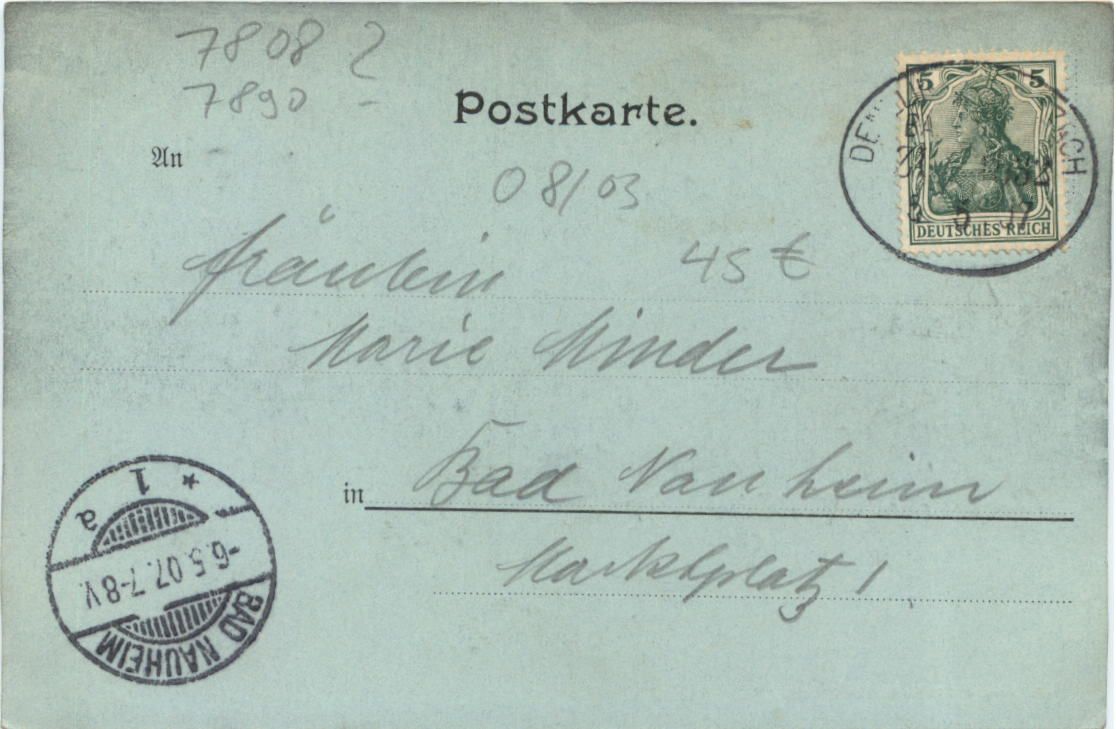 7808 2
7890 -
Postkarte.
An
08/03
5 5
DEUTSCHES REICH
45 €
Fräulein
Marie Minder
in Bad Nauheim
Marktplatz 1
* 1 a
-6.5.07.7-8V.
BAD NAUHEIM